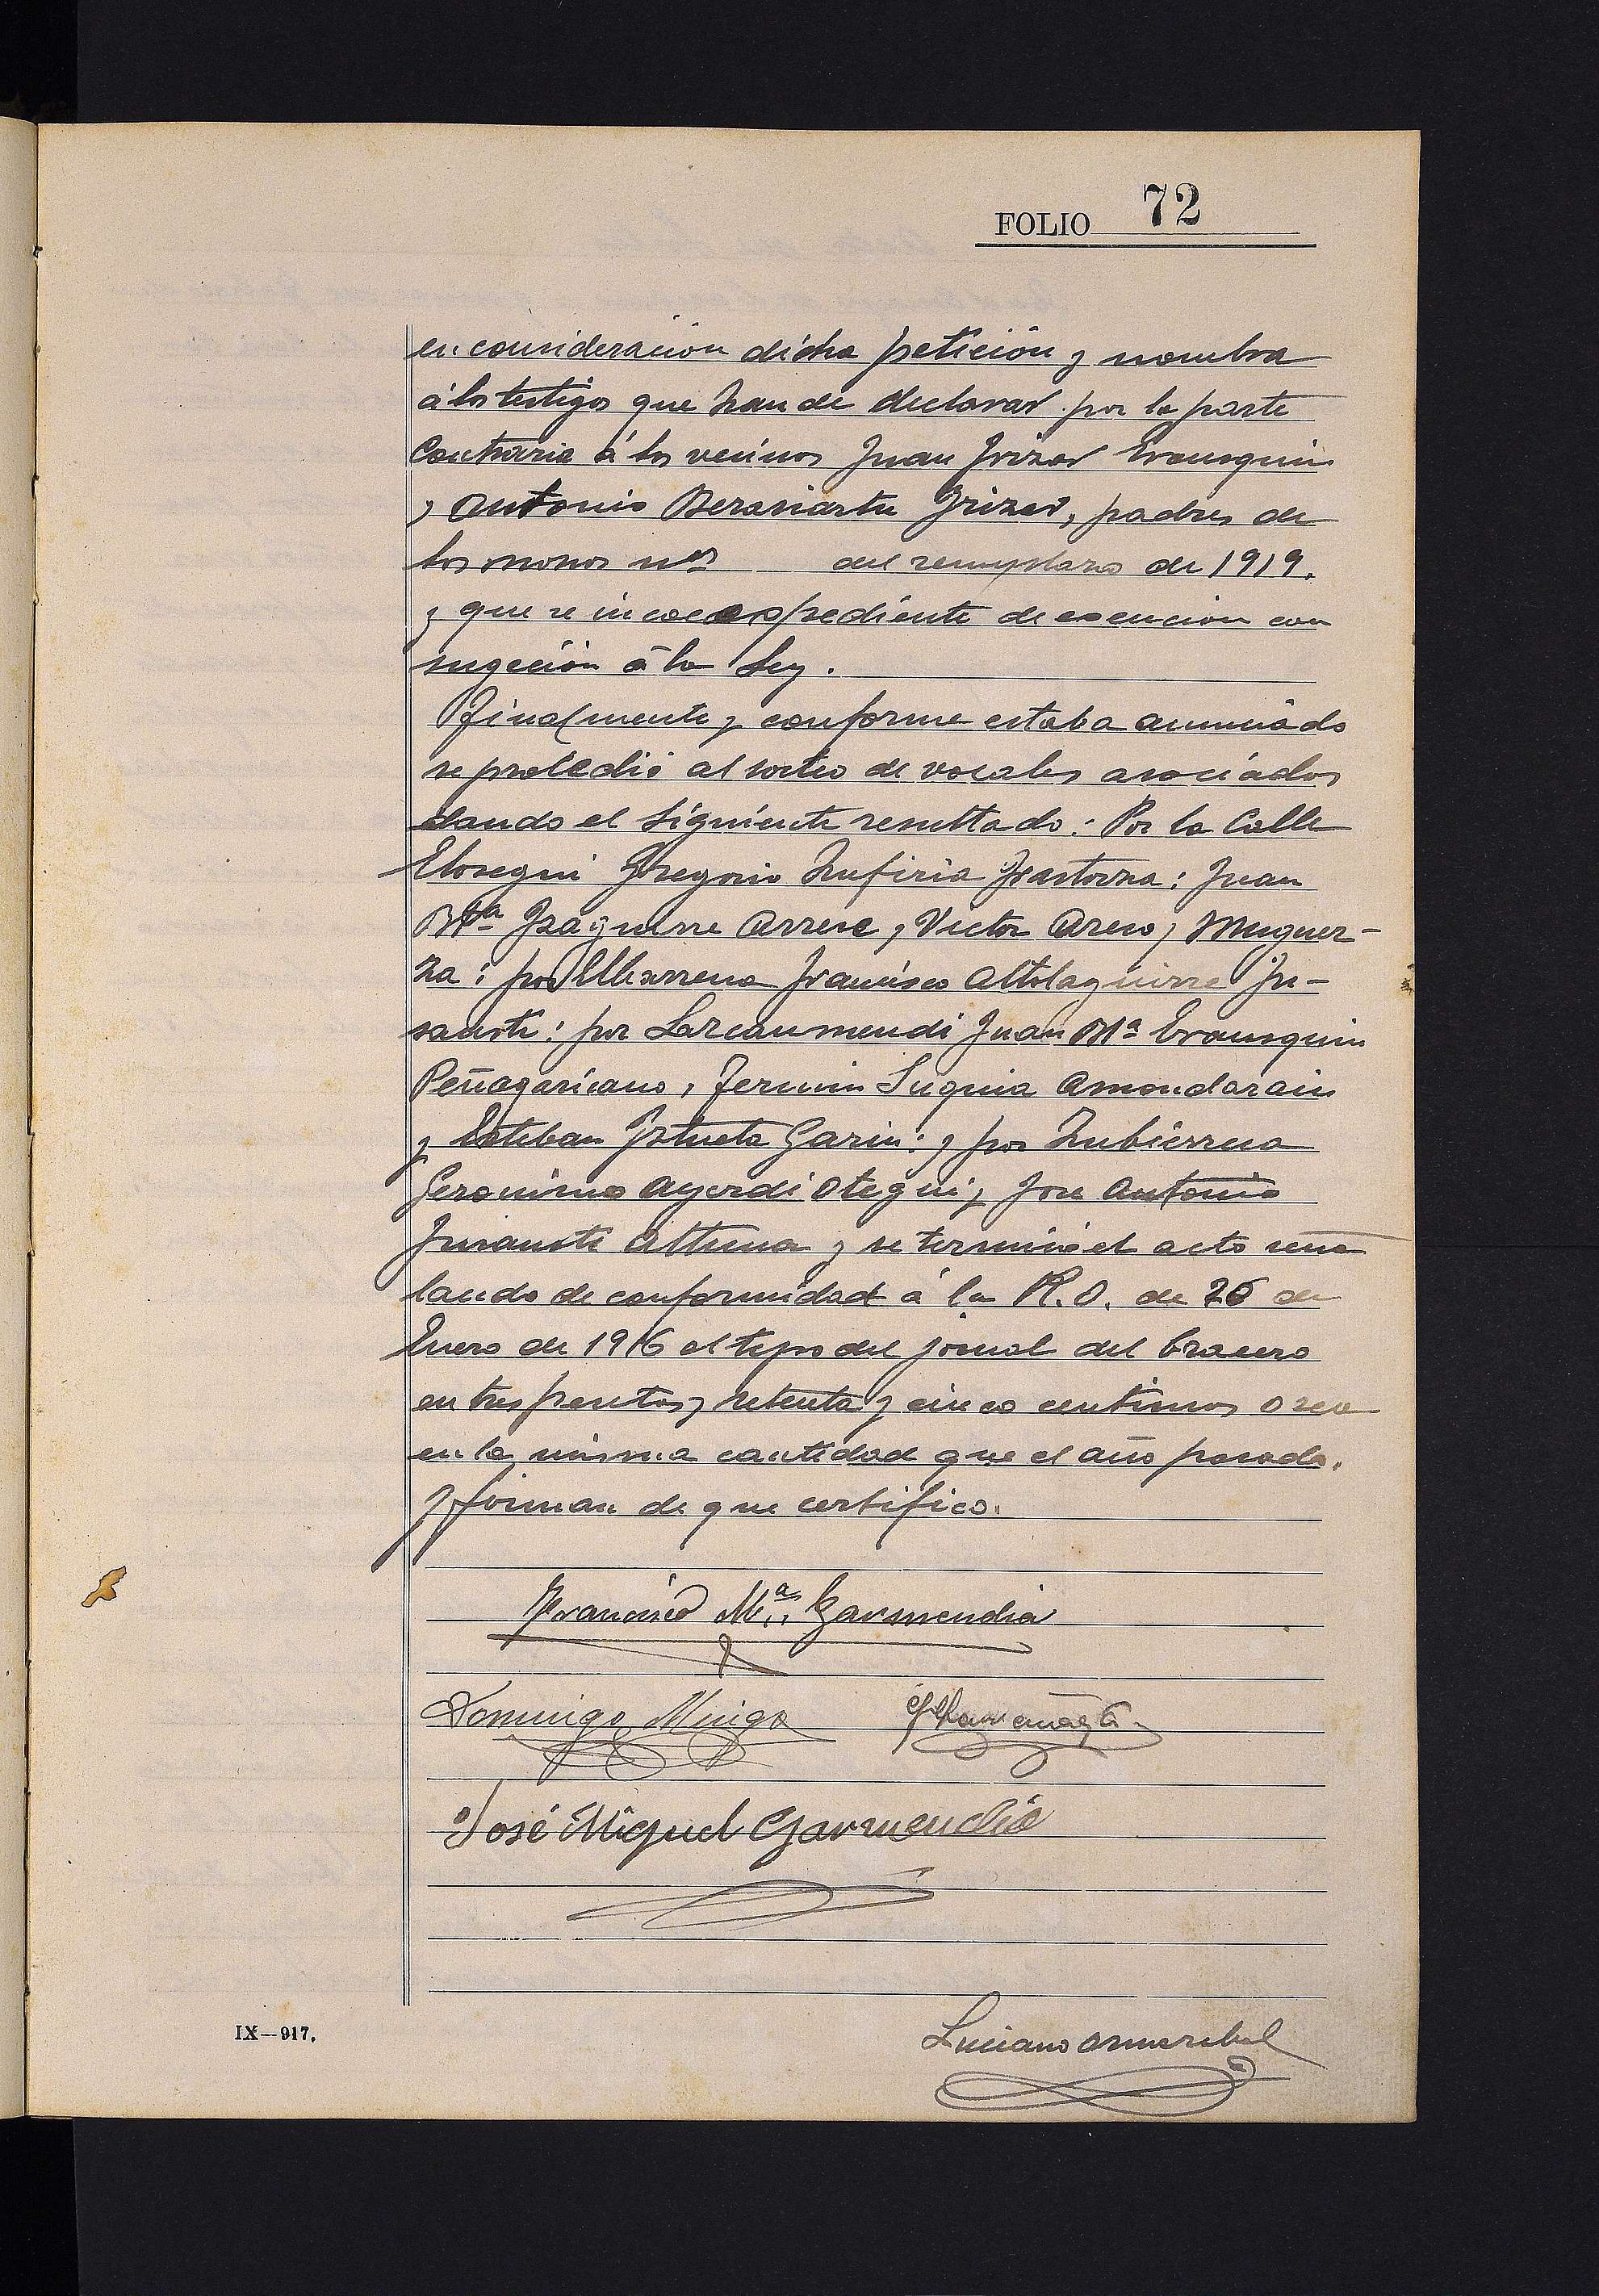 FOLIO 72
en consideración dicha petición y nombra
á los testigos que han de declarar por la parte
Contraria á los vecinos Juan Irizar Erausquin
y Antonio Berasiartu Irizar, padres de
los mozos nos del remplazo de 1919.
y que se incoe expediente de esención con
sugeción á la Ley.
Finalmente y conforme estaba anunciado
se procedió al sorteo de vocales asociados
dando el siguiente resultado: Por la Calle
Elosegui Gregorio Zufiria Irastorza: Juan
Mª Izaguirre Arrese, Victor Areso y Muguer-
za: por Elbarrena Francisco Altolaguirre In-
sausti: por Lazcanomendi Juan Mª Erausquin
Peñagaricano, Fermin Suquia Amondarain
y Esteban Iztueta Garin: y por Zubierrea
Geronimo Ayerdi Otegui y Jose Antonio
Insausti Altuna y se terminó el acto seña
lando de conformidad á la R.O. de 26 de
Enero de 1916 el tipo del jornal del bracero
en tres pesetas y setenta y cinco centimos o sea
en la misma cantidad que el año pasado.
y firman de que certifico.
Francisco Mª Garmendia
Domingo Muiga
José Miguel Garmendia
IX—917.
Luciano